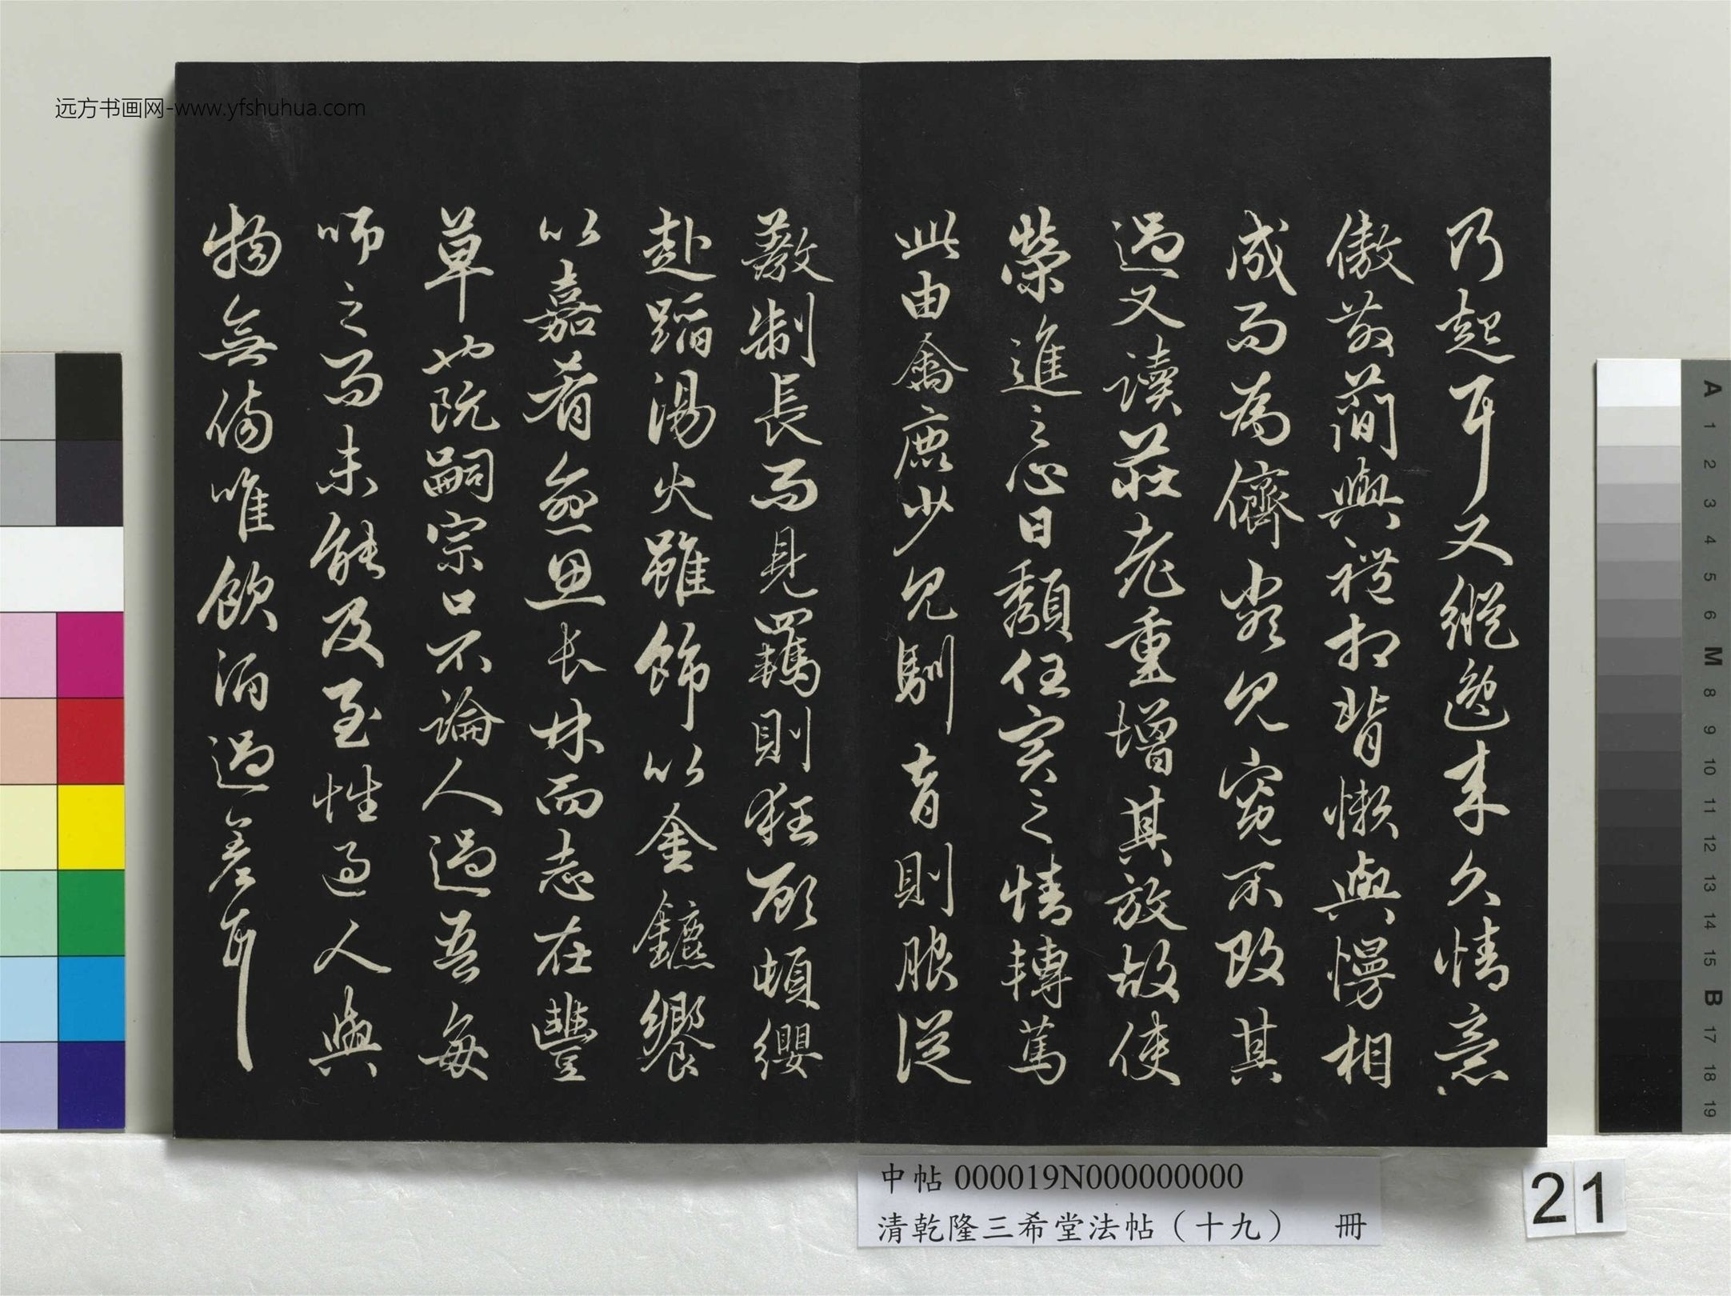 远方书画网-www.yfshuhua.com
乃起耳又縱逸来久情意
傲散簡與禮相背懶與慢相
成而為儕類見寬不攻其
過又讀莊老重增其放故使
榮進之心日頹任實之情轉篤
此由禽鹿少見馴育則服從
教制長而見羈則狂顧頓纓
赴蹈湯火雖飾以金鑣饗
以嘉肴愈思長林而志在豐
草也阮嗣宗口不論人過吾每
師之而未能及至性過人與
物無傷唯飲酒過差耳
中帖 000019N000000000
清乾隆三希堂法帖（十九） 冊
21
A 1 2 3 4 5 6 M 8 9 10 11 12 13 14 15 B 17 18 19